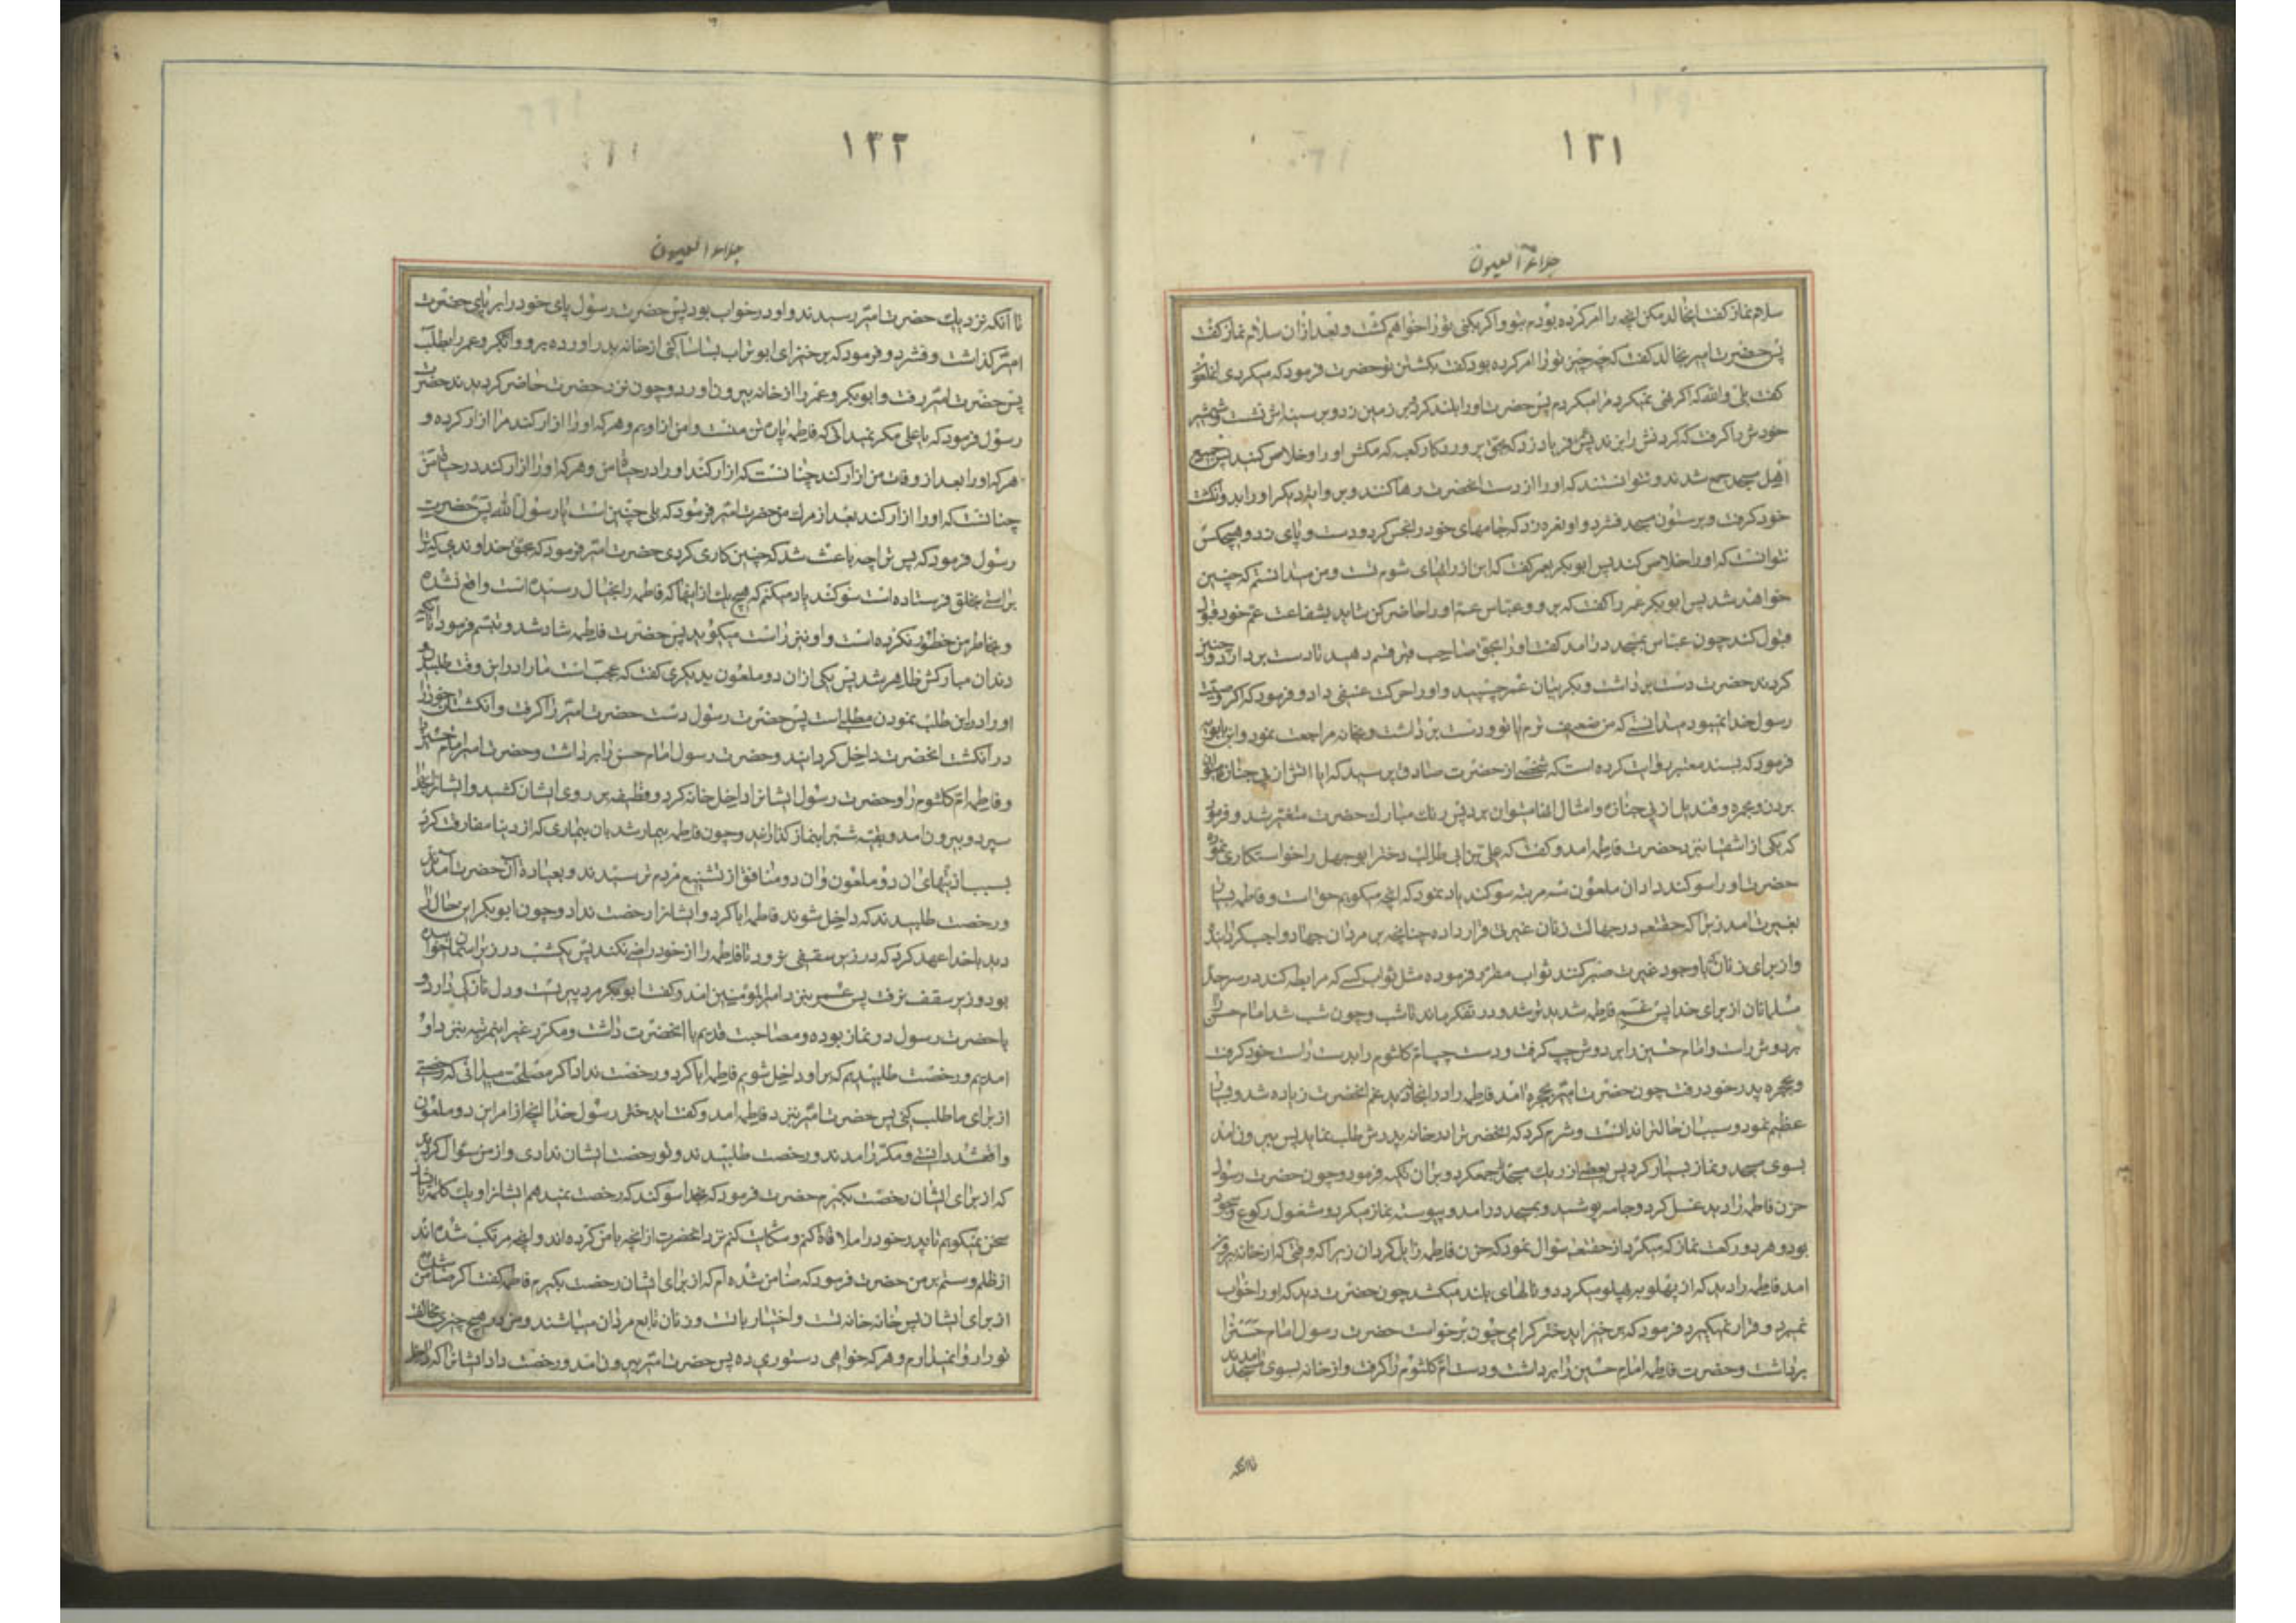 ۱۲۱
جلاء العیون
سلام نماز گفت ایخالد مکن انچه را امر کرده بودم بتو واکر بکنی تو را خواهم کشت و بعد ازان سلام نماز گفت
پس حضرت امیر بخالد گفت که چه چیز تو را امر کرده بود گفت بکشتن تو حضرت فرمود که میکردی
گفت بلی والله که اکر نهی نمیکرد مرا میکردم پس حضرت او را بلند کرد بر زمین زد و بر سینه اش نشست و شمشیر
خودش را گرفت که گردنش را بزند پس فریاد زد که بحق پروردگار کعبه که مکش او را و خلاص کنید پس جمیع
اهل مسجد جمع شدند و نتوانستند که او را از دست انحضرت رها کنند و بروایت دیگر او را بدو انگشت
خود گرفت و بر ستون مسجد فشرد و او نعره زد که جامهای خود را نجس کرد و دست و پای زد و هیچکس
نتوانست که او را خلاص کند پس ابو بکر بعمر گفت که این از رایهای شوم تست و من میدانستم که چنین
خواهد شد پس ابو بکر عمر را گفت که برو و عباس عم او را حاضر کن شاید بشفاعت عم خود قبول
قبول کند چون عباس بمسجد درامد گفت او را بحق صاحب قبر قسم دهید تا دست بردارد و چنین
کردند حضرت دست برداشت و گریبان عمر چسبید و او را حرکت عنیفی داد و فرمود که اگر وصیت
رسول خدا نمیبود میدانستی که من ضعیف ترم یا تو و دست برداشت و بخانه مراجعت نمود و ابن بابویه
فرمود که بسند معتبر روایت کرده است که شخصی از حضرت صادق پرسید که ایا اتش از پی جنازه میتوان
بردن و مجمره و قندیل از پی جنازه و امثال انها میتوان برد پس رنگ مبارک حضرت متغیر شد و فرمود
که یکی از اشقیا بنزد حضرت فاطمه امد و گفت که علی بن ابی طالب دختر ابو جهل را خواستکاری نموده
حضرت او را سوگند داد ان ملعون سه مرتبه سوگند یاد نمود که انچه میگویم حق است و فاطمه بسیار
بغیرت امد زیرا که حقتعالی در جهالت زنان غیرتی قرار داده چنانچه بر مردان جهاد واجب گردانیده
و از برای زنان که با وجود غیرت صبر کنند ثواب مقرر فرموده مثل ثواب کسی که مرابطه کند در سرحد
مسلمانان از برای خدا پس غم فاطمه شدید تر شد و در تفکر ماند تا شب و چون شب شد امام حسن را
بر دوش راست و امام حسین را بر دوش چپ گرفت و دست چپ ام کلثوم را بدست راست خود گرفت
و بحجره پدر خود رفت چون حضرت امیر بحجره امد فاطمه را در انجا ندید غم انحضرت زیاده شد و بسیار
عظیم نمود و سبب ان حالت را ندانست و شرم کرد که انحضرت را در خانه پدرش طلب نماید پس بیرون امد
بسوی مسجد و نماز بسیار کرد پس بعضی از ریک مسجد را جمع کرد و بر ان تکیه فرمود و چون حضرت رسول
حزن فاطمه را دید غسل کرد و جامه پوشید و بمسجد درامد و پیوسته نماز میکرد و مشغول رکوع و سجود
بود و هر دو رکعت نماز که میکرد از حقتعالی سؤال نمود که حزن فاطمه زایل گردان زیرا که وقتی که از خانه بیرون
امد فاطمه را دید که از پهلو به پهلو میکردد و نالهای بلند میکشد چون حضرت دید که او را خواب
نمیبرد و قرار نمیگیرد فرمود که برخیز اید ختر گرامی چون برخواست حضرت رسول امام حسن را
برداشت و حضرت فاطمه امام حسین را برداشت و دست ام کلثوم را گرفت و از خانه بسوی مسجد امدند
تا انکه
۱۲۲
جلاء العیون
تا آنکه نزدیک حضرت امیر رسیدند و او در خواب بود پس حضرت رسول پای خود را بر پای حضرت
امیر گذاشت و فشرد و فرمود که برخیز ای ابو تراب بسا ساکنی از خانه بدر اورده برو و ابو بکر و عمر را بطلب
پس حضرت امیر رفت و ابو بکر و عمر را از خانه بیرون اورد و چون نزد حضرت حاضر گردیدند حضرت
رسول فرمود که یا علی مگر نمیدانی که فاطمه پاره تن منست و من از اویم و هر که او را ازار کند مرا ازار کرده و
هر که او را بعد از وفات من ازار کند چنانست که ازار کند او را در حیات من و هر که او را ازار کند در حیات من
چنانست که او را ازار کند بعد از مرک من حضرت امیر فرمود که بلی چنین است یا رسول الله پس حضرت
رسول فرمود که پس ترا چه باعث شد که چنین کاری کردی حضرت امیر فرمود که بحق خداوندی که ترا
براستی بخلق فرستاده است سوگند یاد میکنم که هیچ یک از انها که فاطمه را بخیال رسیده است واقع نشده
و بخاطر من خطور نکرده است و او نیز راست میگوید پس حضرت فاطمه شاد شد و تبسم فرمود تا انکه
دندان مبارکش ظاهر شد پس یکی از ان دو ملعون بدیگری گفت که عجب است ما را در این وقت طلبیدن
او را در این طلب نمودن مطلبی است پس حضرت رسول دست حضرت امیر را گرفت و انگشتان خود را
در انگشت انحضرت داخل گردانید و حضرت رسول امام حسن را برداشت و حضرت امیر امام حسین را
و فاطمه ام کلثوم را و حضرت رسول ایشانرا داخل خانه کرد و قطیفه بر روی ایشان کشید و ایشانرا بخدا
سپرد و بیرون امد و بقیه شب را بنماز گذارانید و چون فاطمه بیمار شد بان بیماری که از دنیا مفارقت کرد
بسبب اذیتهای ان دو ملعون و ان دو منافق از تشنیع مردم ترسیدند و بعیادة آن حضرت آمدند
و رخصت طلبیدند که داخل شوند فاطمه ابا کرد و ایشانرا رخصت نداد و چون ابو بکر این حال را
دید با خدا عهد کرد که در زیر سقفی نرود تا فاطمه را از خود راضی نکند پس یکشب در زیر اسمان خوابیده
بود و زیر سقف نرفت پس عمر بنزد امیرالمومنین امد و گفت ابو بکر مرد پیریست و دل نازکی دارد و
با حضرت رسول در غار بوده و مصاحبت قدیم با انحضرت داشت و مکرر غیر اینمرتبه بنزد او
امدیم و رخصت طلبیدیم که بر او داخل شویم فاطمه ابا کرد و رخصت نداد اگر مصلحت میدانی که رخصتی
از برای ما طلب کنی پس حضرت امیر بنزد فاطمه امد و گفت ایدختر رسول خدا انچه از امر این دو ملعون
واقع شد دانستی و مکرر امدند و رخصت طلبیدند و تو رخصت ایشان ندادی و از من سؤال کردند
که از برای ایشان رخصت بگیرم حضرت فرمود که بخدا سوگند که رخصت نمیدهم ایشانرا و یک کلمه با ایشان
سخن نمیگویم تا پدر خود را ملاقاة کنم و شکایت کنم نزد انحضرت از انچه با من کرده اند و انچه مرتکب شده اند
از ظلم و ستم بر من حضرت فرمود که ضامن شده ام که از برای ایشان رخصت بگیرم فاطمه گفت اگر ضامن شده
از برای ایشان پس خانه خانه تست و اختیار باتست و زنان تابع مردان میباشند و من در هیچ چیزی مخالفت
تو را روا نمیدارم و هر که خواهی دستوری ده پس حضرت امیر بیرون امد و رخصت داد ایشانرا که داخل